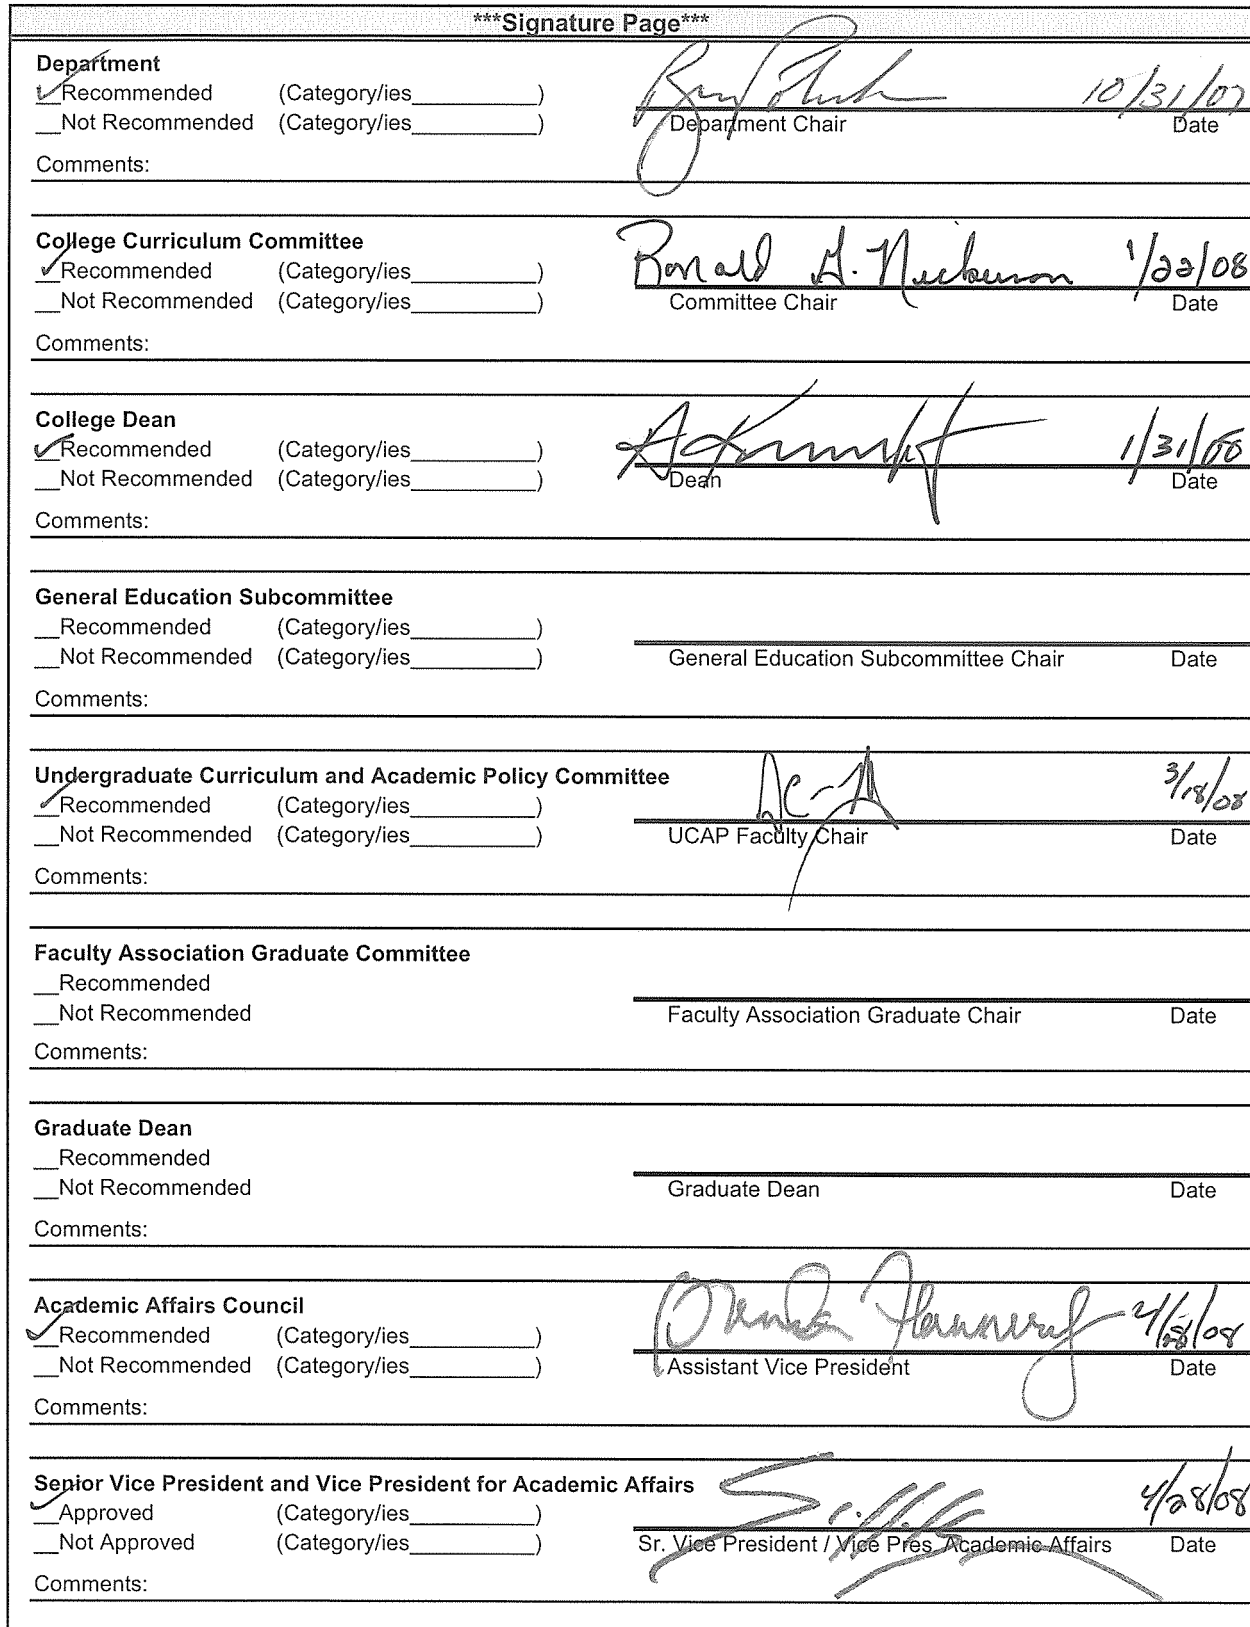 ***Signature Page***
Department
__Recommended (Category/ies__________)
10/31/07
__Not Recommended (Category/ies__________)
Department Chair Date
Comments:
College Curriculum Committee
__Recommended (Category/ies__________)
Ronald G. Nickerson 1/22/08
__Not Recommended (Category/ies__________)
Committee Chair Date
Comments:
College Dean
__Recommended (Category/ies__________)
1/31/08
__Not Recommended (Category/ies__________)
Dean Date
Comments:
General Education Subcommittee
__Recommended (Category/ies__________)
__Not Recommended (Category/ies__________)
General Education Subcommittee Chair Date
Comments:
Undergraduate Curriculum and Academic Policy Committee
3/18/08
__Recommended (Category/ies__________)
__Not Recommended (Category/ies__________)
UCAP Faculty Chair Date
Comments:
Faculty Association Graduate Committee
__Recommended
__Not Recommended
Faculty Association Graduate Chair Date
Comments:
Graduate Dean
__Recommended
__Not Recommended
Graduate Dean Date
Comments:
Academic Affairs Council
__Recommended (Category/ies__________)
4/28/08
__Not Recommended (Category/ies__________)
Assistant Vice President Date
Comments:
Senior Vice President and Vice President for Academic Affairs
__Approved (Category/ies__________)
4/28/08
__Not Approved (Category/ies__________)
Sr. Vice President / Vice Pres. Academic Affairs Date
Comments: